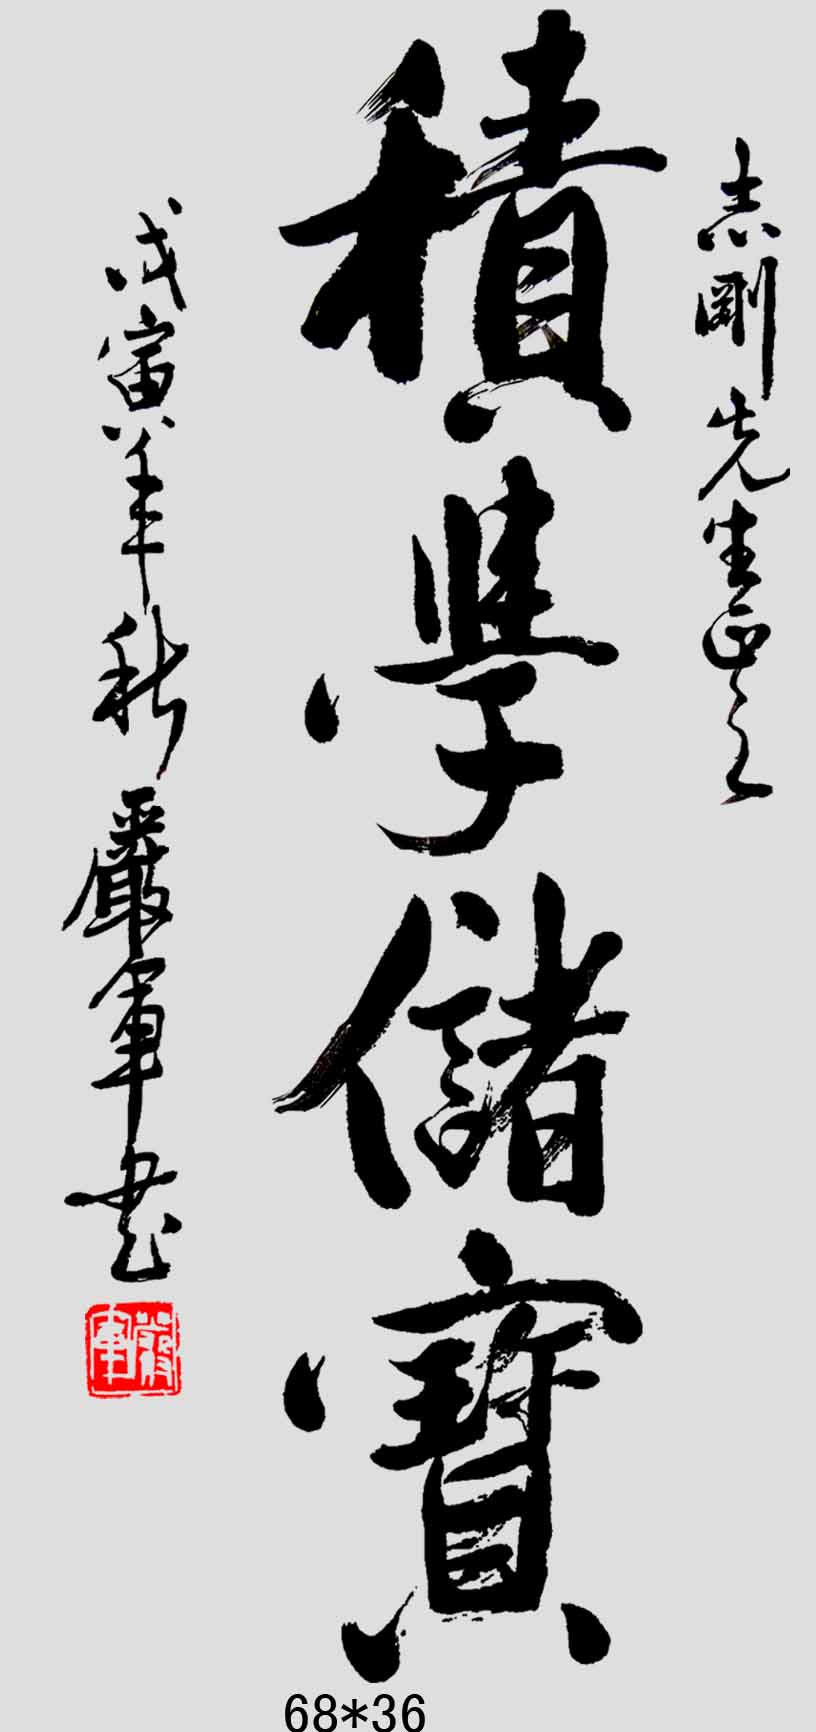 志剛先生正之
積學儲寶
戊寅年秋嚴軍書
嚴軍
68*36